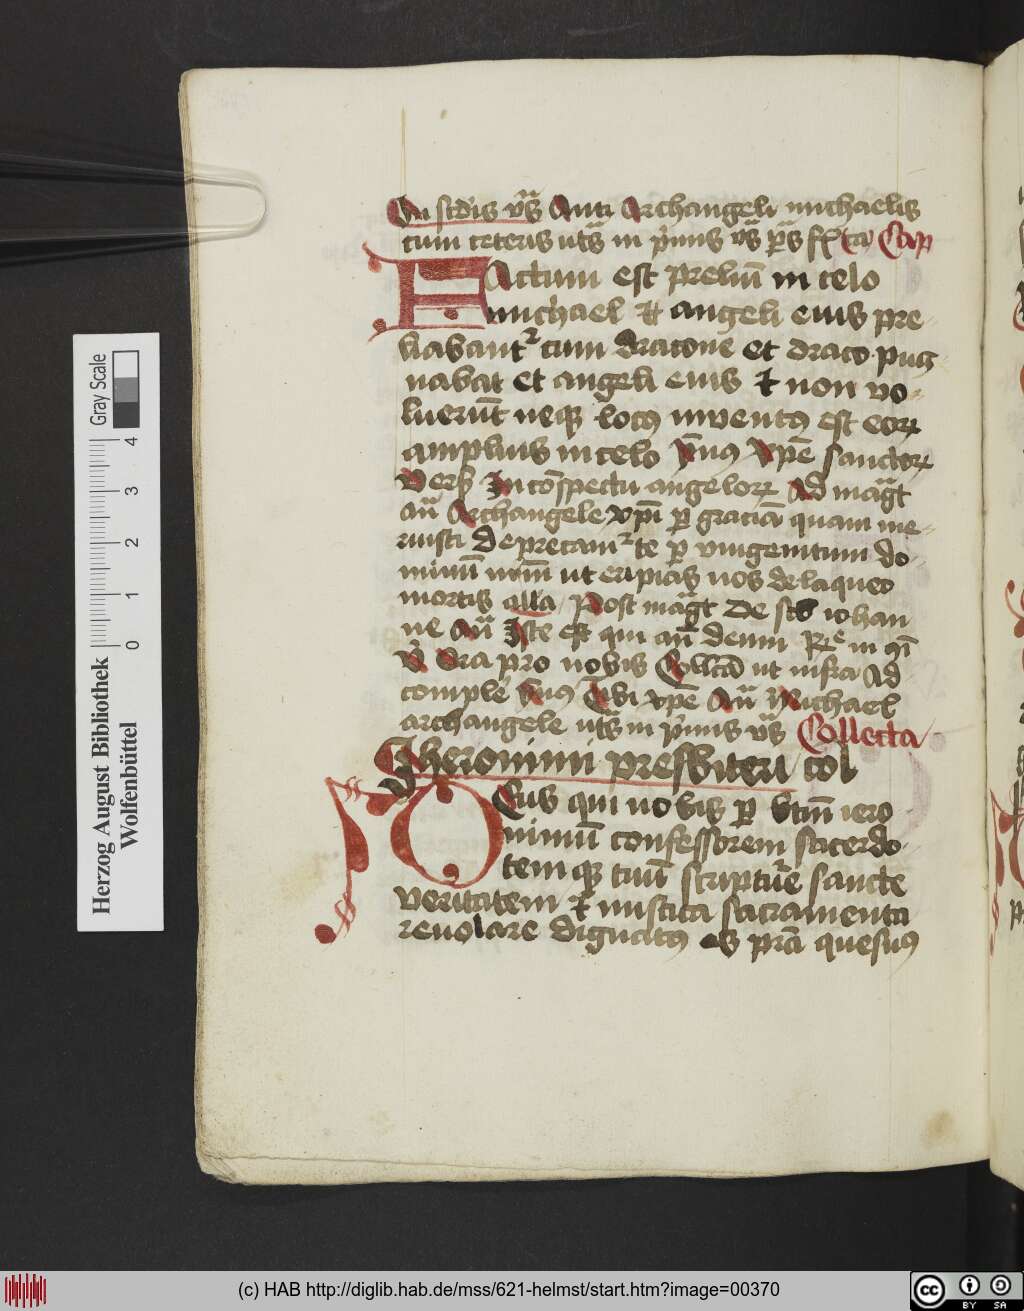 In scdis vs̄ Anti Archangeli michaelis
cum ceteris uts̄ in p̄mis vs̄ ps̄ Cap
FActum est preliū in celo
michael et angeli eius pre
liabant᷑ cum dracone et draco pug
nabat et angeli eius et non va
luerūt neqꝫ locꝰ inventꝰ est eoꝝ
amplius in celo xp̄e sanctoꝝ
In cōspectu angeloꝝ Ad mag̅t
an̄ Archangele xp̄i ꝑ graciā quam me
ruisti Deprecam᷑ te ꝑ vnigenitum do
minū nr̄m ut eripias nos de laqueo
mortis alla Post mag̅t De sctō iohan
ne an̄ Iste est qui an̄ deum in
Ora pro nobis Collcā ut infra Ad
comple Tibi xp̄e an̄ Michael
archangele uts̄ in p̄mis vs̄ Collecta
Iheronimi presbiteri col
DEus qui nobis ꝑ btm̄ iero
nimū confessorem sacerdo
temqꝫ tuū scripture sancte
veritatem et mistica sacramenta
revolare dignatꝰ es quesumꝰ
Herzog August Bibliothek
Wolfenbüttel
Gray Scale
0 1 2 3 4
(c) HAB http://diglib.hab.de/mss/621-helmst/start.htm?image=00370
cc BY SA